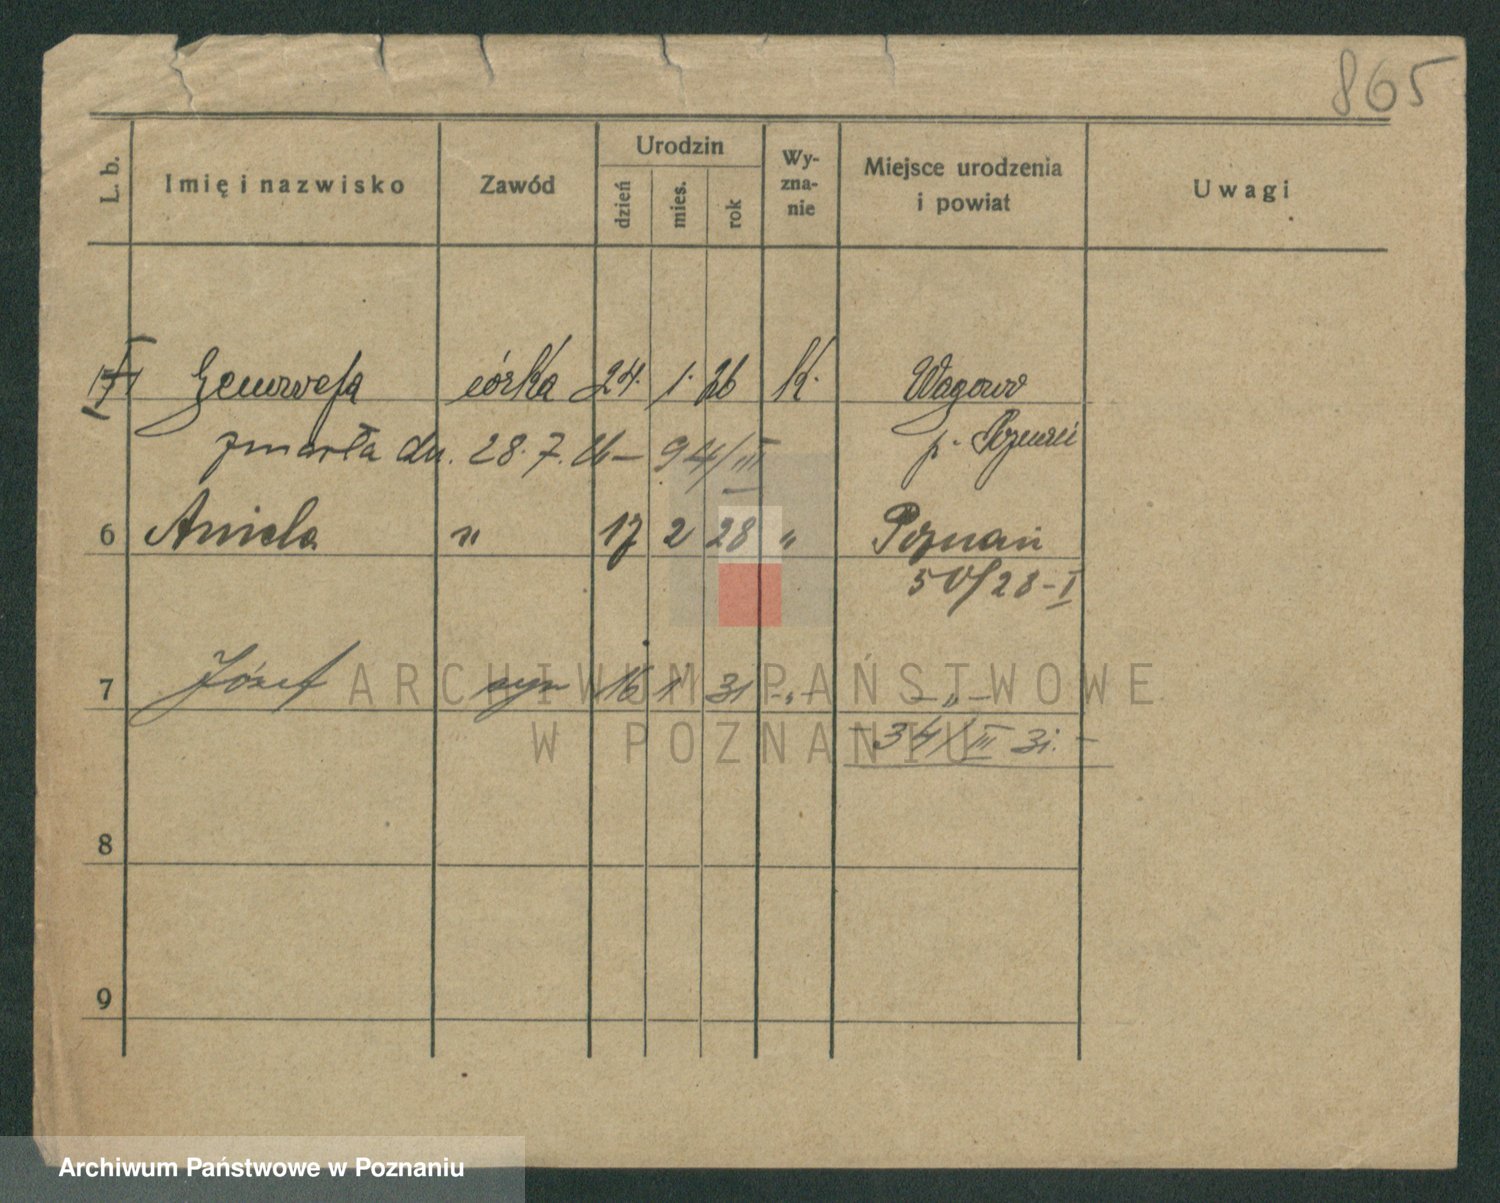 865
L. b. Imię i nazwisko Zawód Urodzin dzień mies. rok Wy-zna-nie Miejsce urodzenia i powiat Uwagi
Genowefa córka 24. 1. 26 K. Wagowo
zmarła dn. 28. 7. 26 – 94/III p.
6 Aniela " 17 2 28 " Poznań
50/28-I
7 Józef syn 16 1 31 -"- -"-
34/III 31. -
8
9
ARCHIWUM PAŃSTWOWE
W POZNANIU
Archiwum Państwowe w Poznaniu